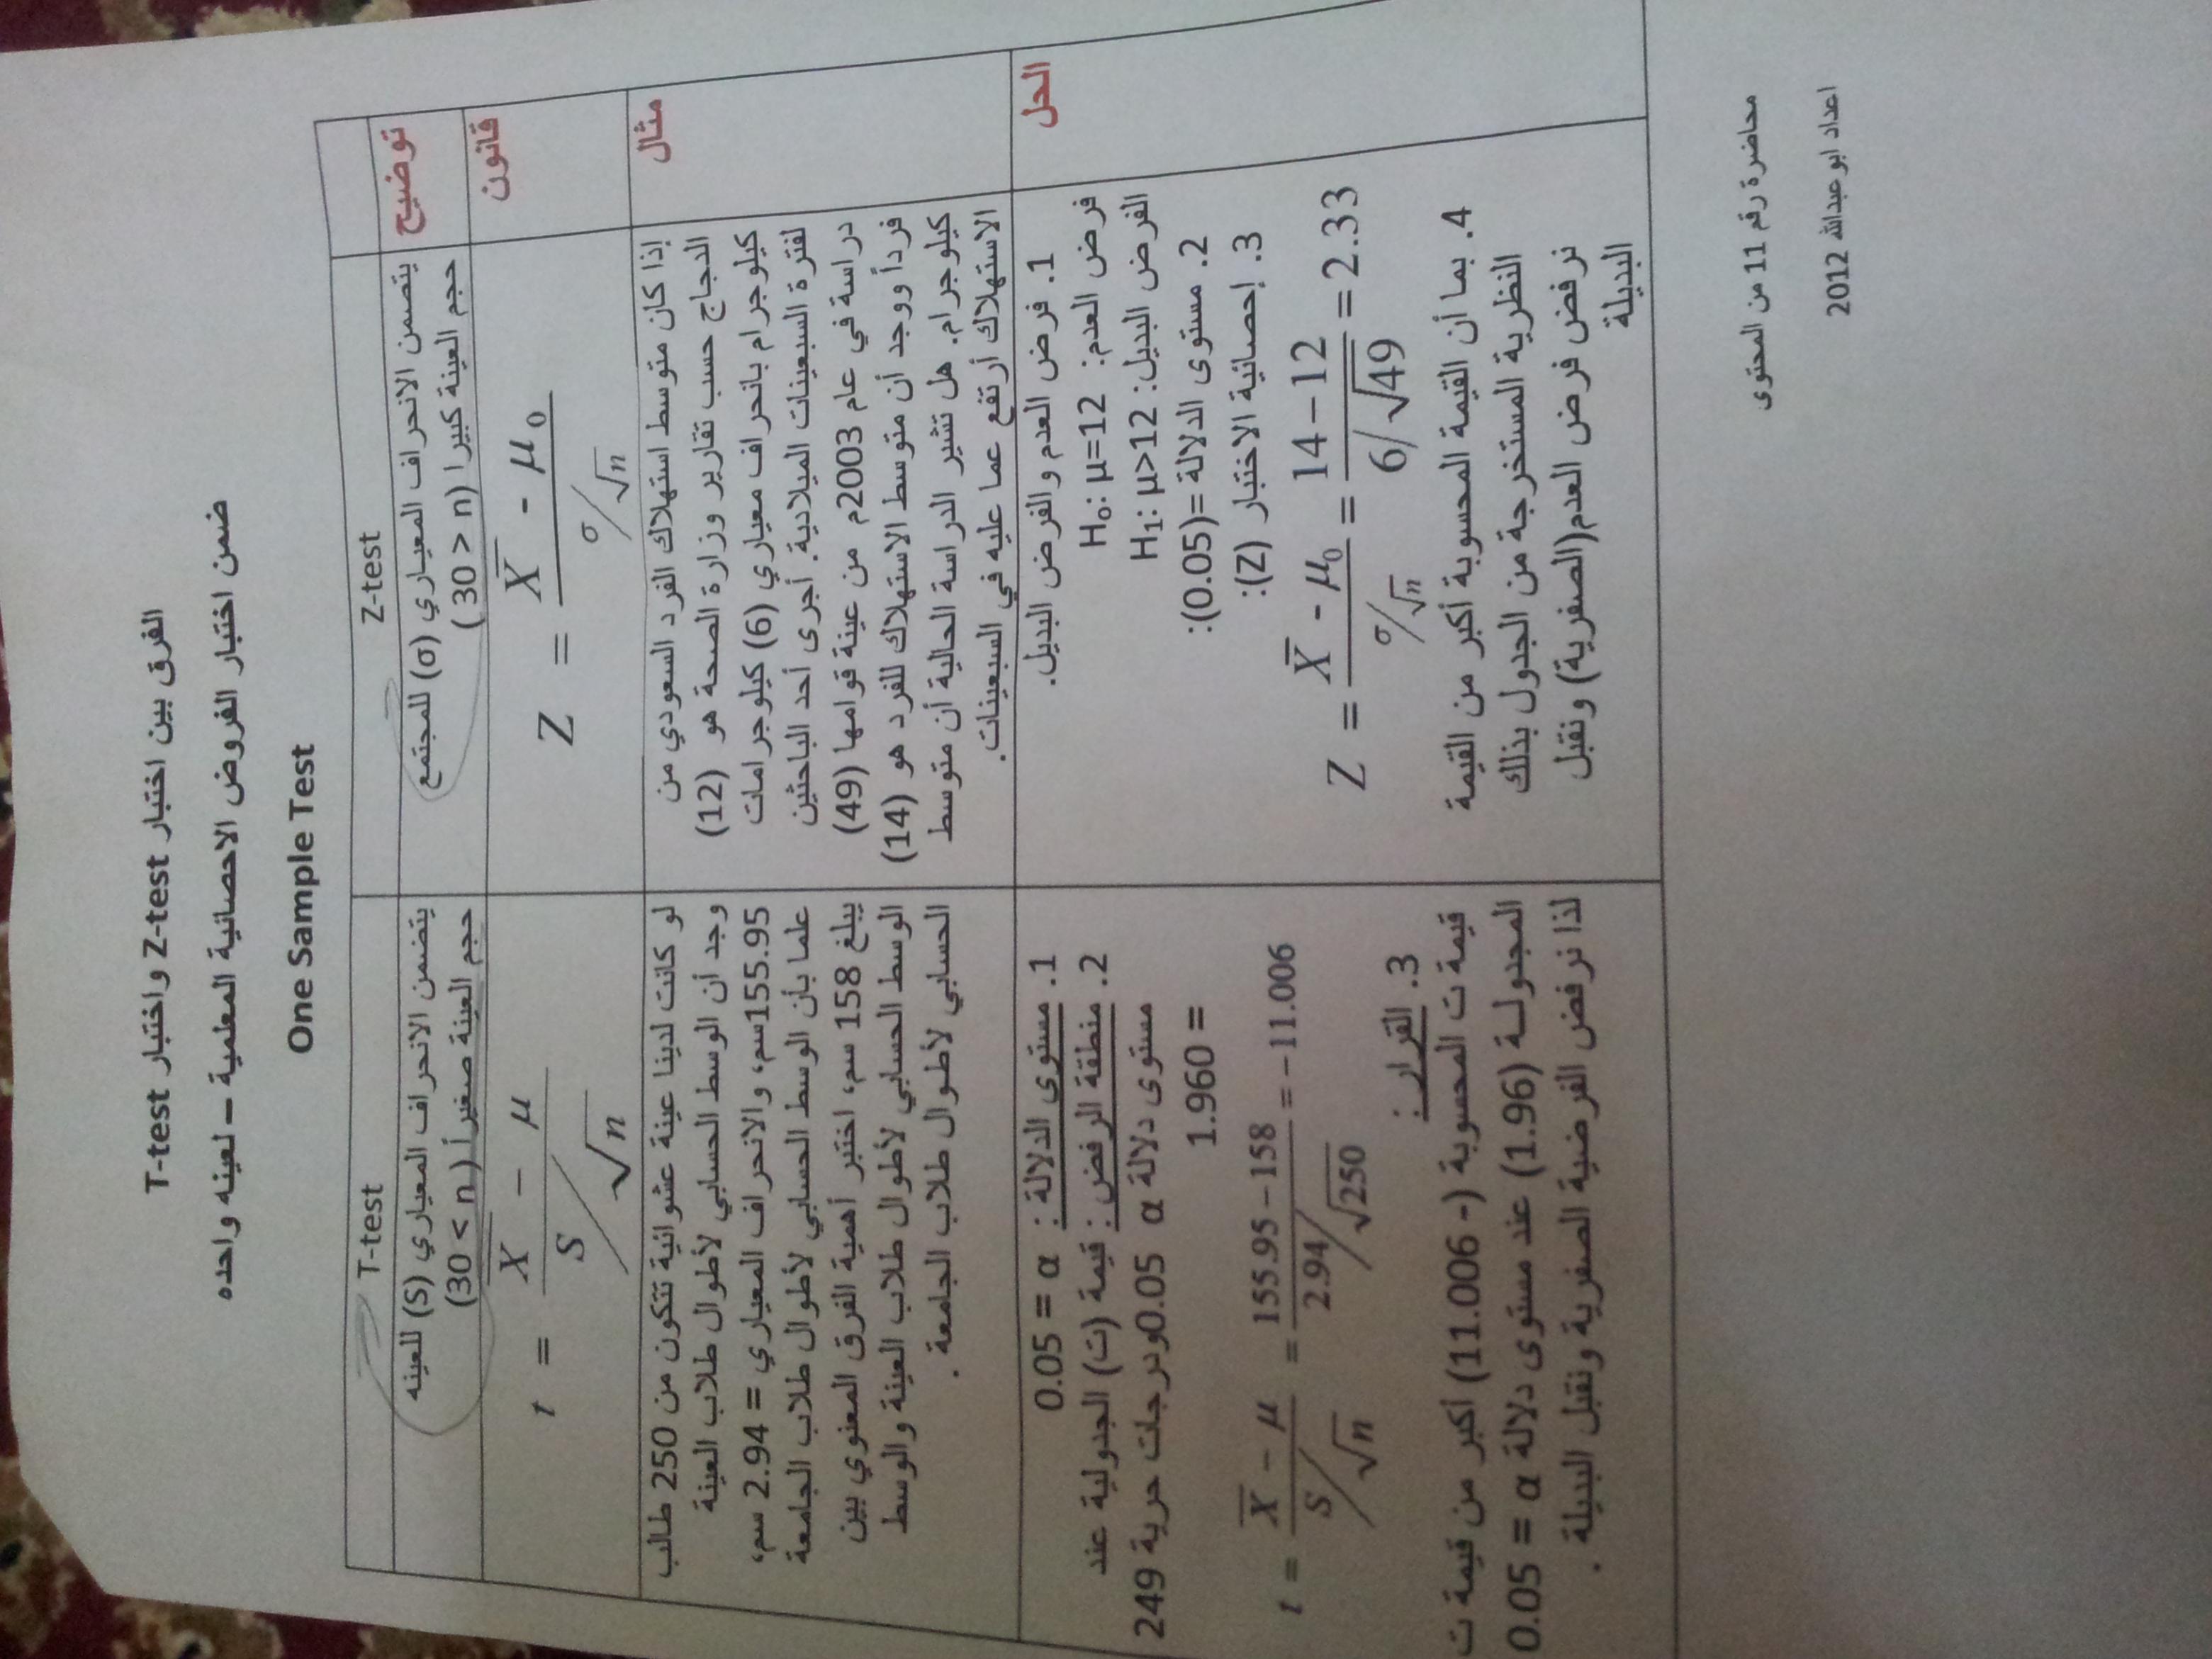 الفرق بين اختبار Z-test واختبار T-test
ضمن اختبار الفروض الاحصائية المعلمية – لعينه واحده
One Sample Test
Z-test
T-test
توضيح
يتصمن الانحراف المعياري (σ) للمجتمع
حجم العينة كبيرا (n > 30 )
يتضمن الانحراف المعياري (S) للعينه
حجم العينة صغيراً (n < 30)
قانون
Z = X̄ - μ₀ / σ/√n
t = X̄ − μ / S/√n
مثال
إذا كان متوسط استهلاك الفرد السعودي من
الدجاج حسب تقارير وزارة الصحة هو (12)
كيلوجرام بانحراف معياري (6) كيلوجرامات
لفترة السبعينات الميلادية. أجرى أحد الباحثين
دراسة في عام 2003م من عينة قوامها (49)
فرداً ووجد أن متوسط الاستهلاك للفرد هو (14)
كيلوجرام. هل تشير الدراسة الحالية أن متوسط
الاستهلاك أرتفع عما عليه في السبعينات.
لو كانت لدينا عينة عشوائية تتكون من 250 طالب
وجد أن الوسط الحسابي لأطوال طلاب العينة
155.95سم، والانحراف المعياري = 2.94 سم،
علما بأن الوسط الحسابي لأطوال طلاب الجامعة
يبلغ 158 سم، اختبر أهمية الفرق المعنوي بين
الوسط الحسابي لأطوال طلاب العينة والوسط
الحسابي لأطوال طلاب الجامعة .
الحل
1. فرض العدم والفرض البديل.
فرض العدم: H₀: μ=12
الفرض البديل: H₁: μ>12
2. مستوى الدلالة=(0.05):
3. إحصائية الاختبار (Z):
Z = X̄ - μ₀ / σ/√n = 14−12 / 6/√49 = 2.33
4. بما أن القيمة المحسوبة أكبر من القيمة
النظرية المستخرجة من الجدول بذلك
نرفض فرض العدم(الصفرية) ونقبل
البديلة
1. مستوى الدلالة : α = 0.05
2. منطقة الرفض : قيمة (ت) الجدولية عند
مستوى دلالة α 0.05ودرجات حرية 249
= 1.960
t = X̄ − μ / S/√n = 155.95−158 / 2.94/√250 = −11.006
3. القرار :
قيمة ت المحسوبة (- 11.006) أكبر من قيمة ت
المجدولة (1.96) عند مستوى دلالة α = 0.05
لذا نرفض الفرضية الصفرية ونقبل البديلة .
محاضرة رقم 11 من المحتوى
اعداد ابو عبدالله 2012